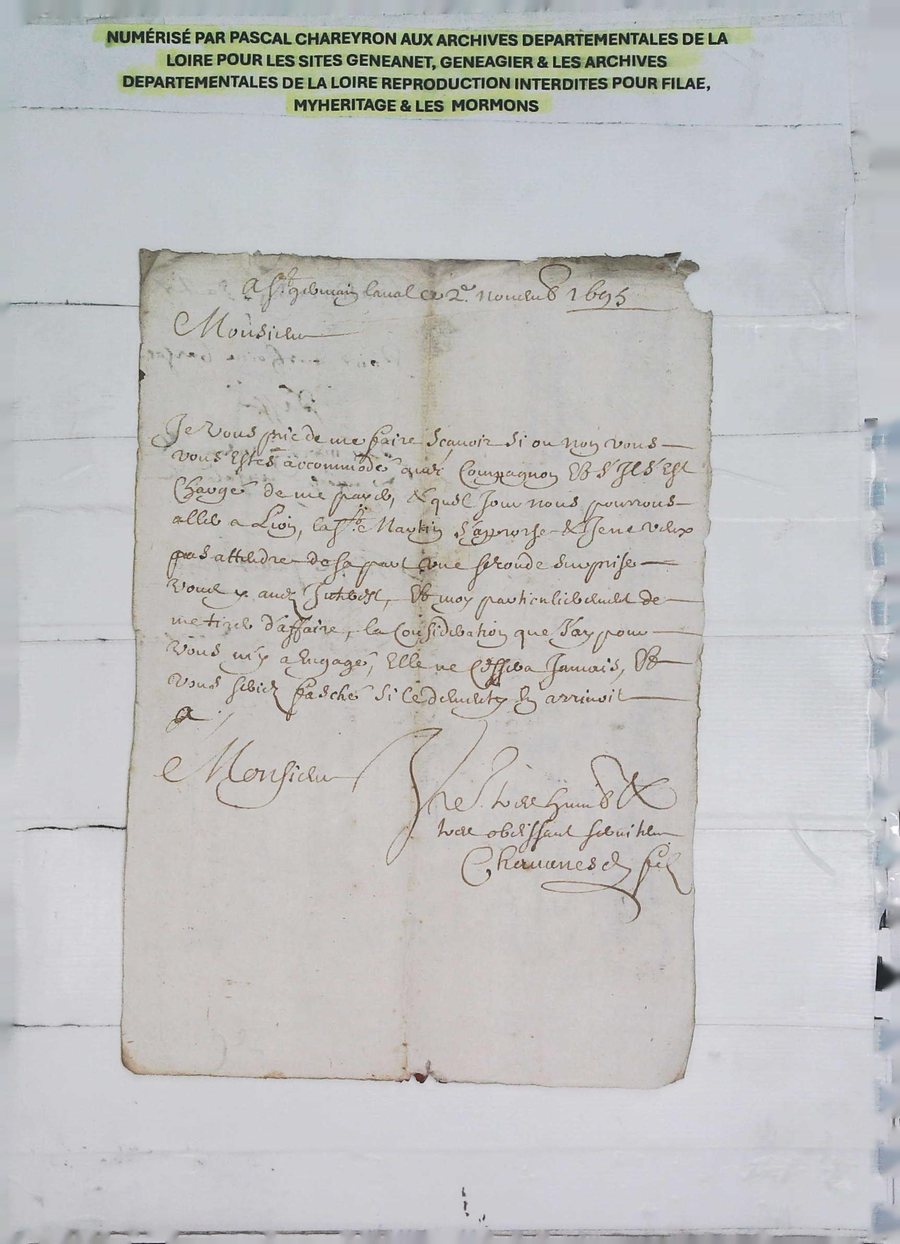 NUMÉRISÉ PAR PASCAL CHAREYRON AUX ARCHIVES DEPARTEMENTALES DE LA
LOIRE POUR LES SITES GENEANET, GENEAGIER & LES ARCHIVES
DEPARTEMENTALES DE LA LOIRE REPRODUCTION INTERDITES POUR FILAE,
MYHERITAGE & LES MORMONS
A St germain laval ce 2e novemb 1695
Monsieur
Je vous prie de me faire sçavoir si ou non vous
vous estes accommodé avec Compagnon Et s'Il s'Est
Chargé de me payer, & quel Jour nous pourrons
aller a Lion, la St Martin s'aproche & Je ne veux
pas attendre de sa part une seconde surprise
vous y avez Interest, Et moy particulierement de
me tirer d'affaire, la Consideration que J'ay pour
vous m'y a Engagé, Elle ne Cessera Jamais, Et
vous seriez fasché si le dementy En arrivoit
a
Monsieur
Vre tres humb &
tres obeissant serviteur
fils